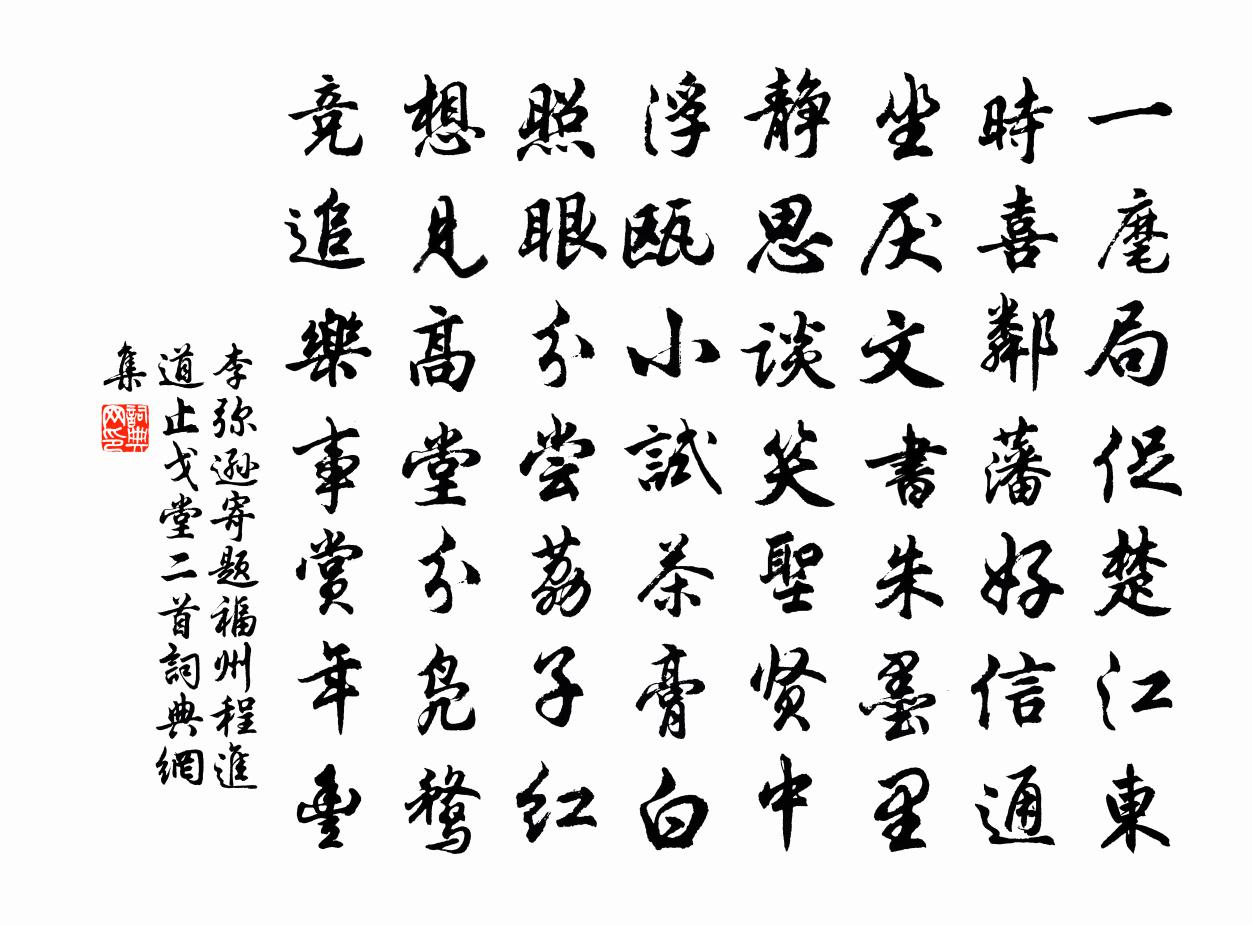 一麾局促楚江東
時喜鄰藩好信通
坐厌文書朱墨里
静思谈笑聖贤中
浮瓯小試茶膏白
照眼分尝荔子红
想見高堂分凫鹜
竞追樂事賞年豊
李弥遜寄题福州程進
道止戈堂二首詞典網
集
詞典网印